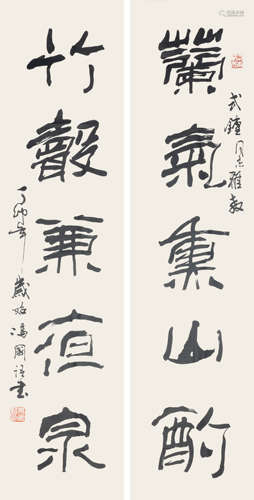 蘭氣熏山酌
同志雅教
竹聲兼夜泉
丁卯年歲始馮國語書